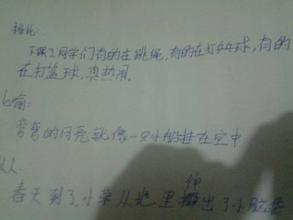 排比:
下课了同学们有的在跳绳,有的在打乒乓球,有的
在打篮球,真热闹。
比喻:
弯弯的月亮就像一只小船挂在空中
从
春天到了,小草从地里伸出了小脑袋